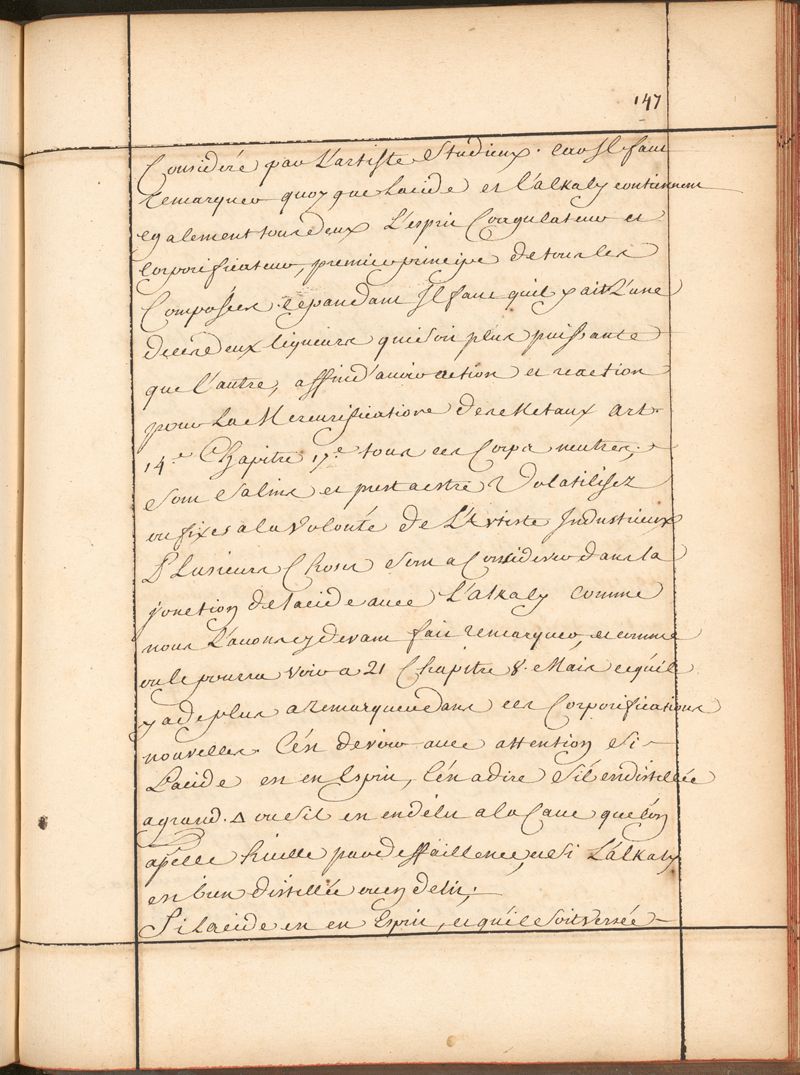 147
Consideré par L'artiste Studieux. car Il faut
remarquer quoy que Lacide et l'alkaly contiennent
egalement tous deux L'esprit Coagulateur et
Corporificateur, premier principe de tous les
Composées. cependant Il faut quil y ait L'une
de ces deux liqueurs qui soit plus puissante
que l'autre, affin d'avoir action et reaction
pour La Mercurification des Metaux Art.
14.e Chapitre 17.e tous ces Corps neutres,
Sont Salins et prest a estre Volatilisez
ou fixes a la Volonté de L'Artiste Industrieux
Plusieurs Choses sont a Considerer dans la
jonction de lacide avec L'alkaly comme
nous L'avons cy devant fait remarquer, et comme
on le pourra voir a 21 Chapitre 8. Mais ce quil
y a de plus a remarquer dans ces Corporifications
nouvelles. C'est de voir avec attention Si
Lacide est en Esprit, C'est a dire S'il est distillée
a grand. △ ou sil est en deliu a la Cave que l'on
apelle huille par deffaillence, et Si L'alkaly
est bien distillée ou en deliu;
Si lacide est en Esprit, et quil soit versée